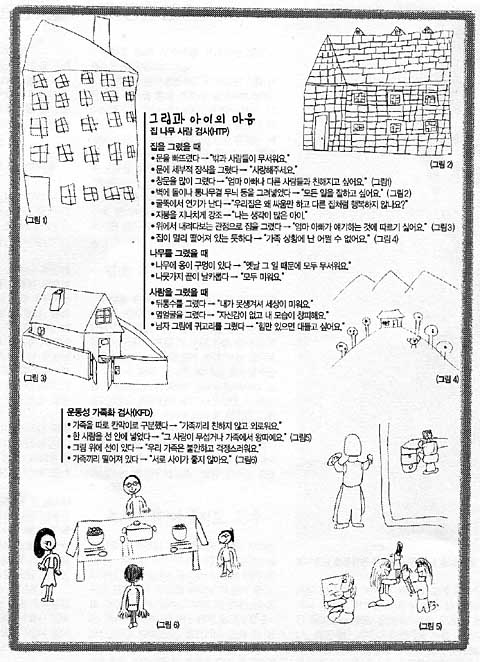 그림과 아이의 마음
집 나무 사람 검사(HTP)
집을 그렸을 때
• 문을 빠뜨렸다 → "밖과 사람들이 무서워요."
• 문에 세부적 장식을 그렸다 → "사랑해주세요."
• 창문을 많이 그렸다 → "엄마 아빠나 다른 사람들과 친해지고 싶어요." (그림1)
• 벽에 돌이나 통나무결 무늬 등을 그려넣었다 → "모든 일을 잘하고 싶어요." (그림2)
• 굴뚝에서 연기가 난다 → "우리집은 왜 싸움만 하고 다른 집처럼 행복하지 않나요?"
• 지붕을 지나치게 강조 → "나는 생각이 많은 아이."
• 위에서 내려다보는 관점으로 집을 그렸다 → "엄마 아빠가 얘기하는 것에 따르기 싫어요." (그림3)
• 집이 멀리 떨어져 있는 듯하다 → "가족 상황에 난 어쩔 수 없어요." (그림4)
나무를 그렸을 때
• 나무에 옹이 구멍이 있다 → "옛날 그 일 때문에 모두 무서워요."
• 나뭇가지 끝이 날카롭다 → "모두 미워요."
사람을 그렸을 때
• 뒤통수를 그렸다 → "내가 못생겨서 세상이 미워요."
• 옆얼굴을 그렸다 → "자신감이 없고 내 모습이 창피해요."
• 남자 그림에 귀고리를 그렸다 → "힘만 있으면 대들고 싶어요."
(그림 1)
(그림 2)
(그림 3)
(그림 4)
운동성 가족화 검사(KFD)
• 가족을 따로 칸막이로 구분했다 → "가족끼리 친하지 않고 외로워요."
• 한 사람을 선 안에 넣었다 → "그 사람이 무섭거나 가족에서 왕따예요." (그림5)
• 그림 위에 선이 있다 → "우리 가족은 불안하고 걱정스러워요."
• 가족끼리 떨어져 있다 → "서로 사이가 좋지 않아요." (그림6)
(그림 6)
(그림 5)